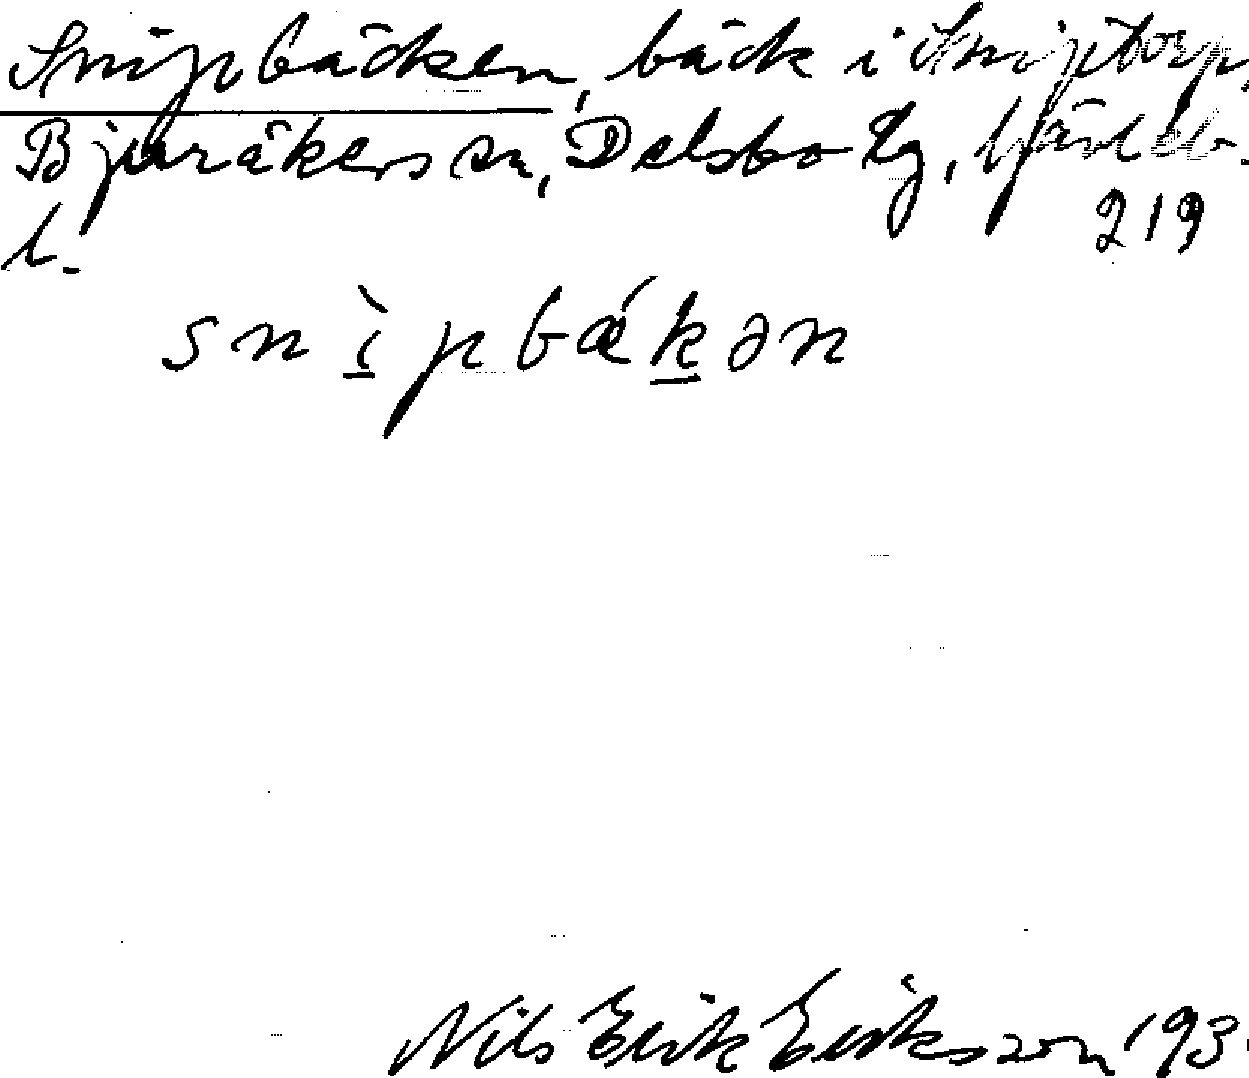 Snipbäcken, bäck i Sniptorp,
Bjuråkers sn, Delsbo tg, Gävleb.
l. 219
snìpbǽkən
Nils Erik Eriksson 193